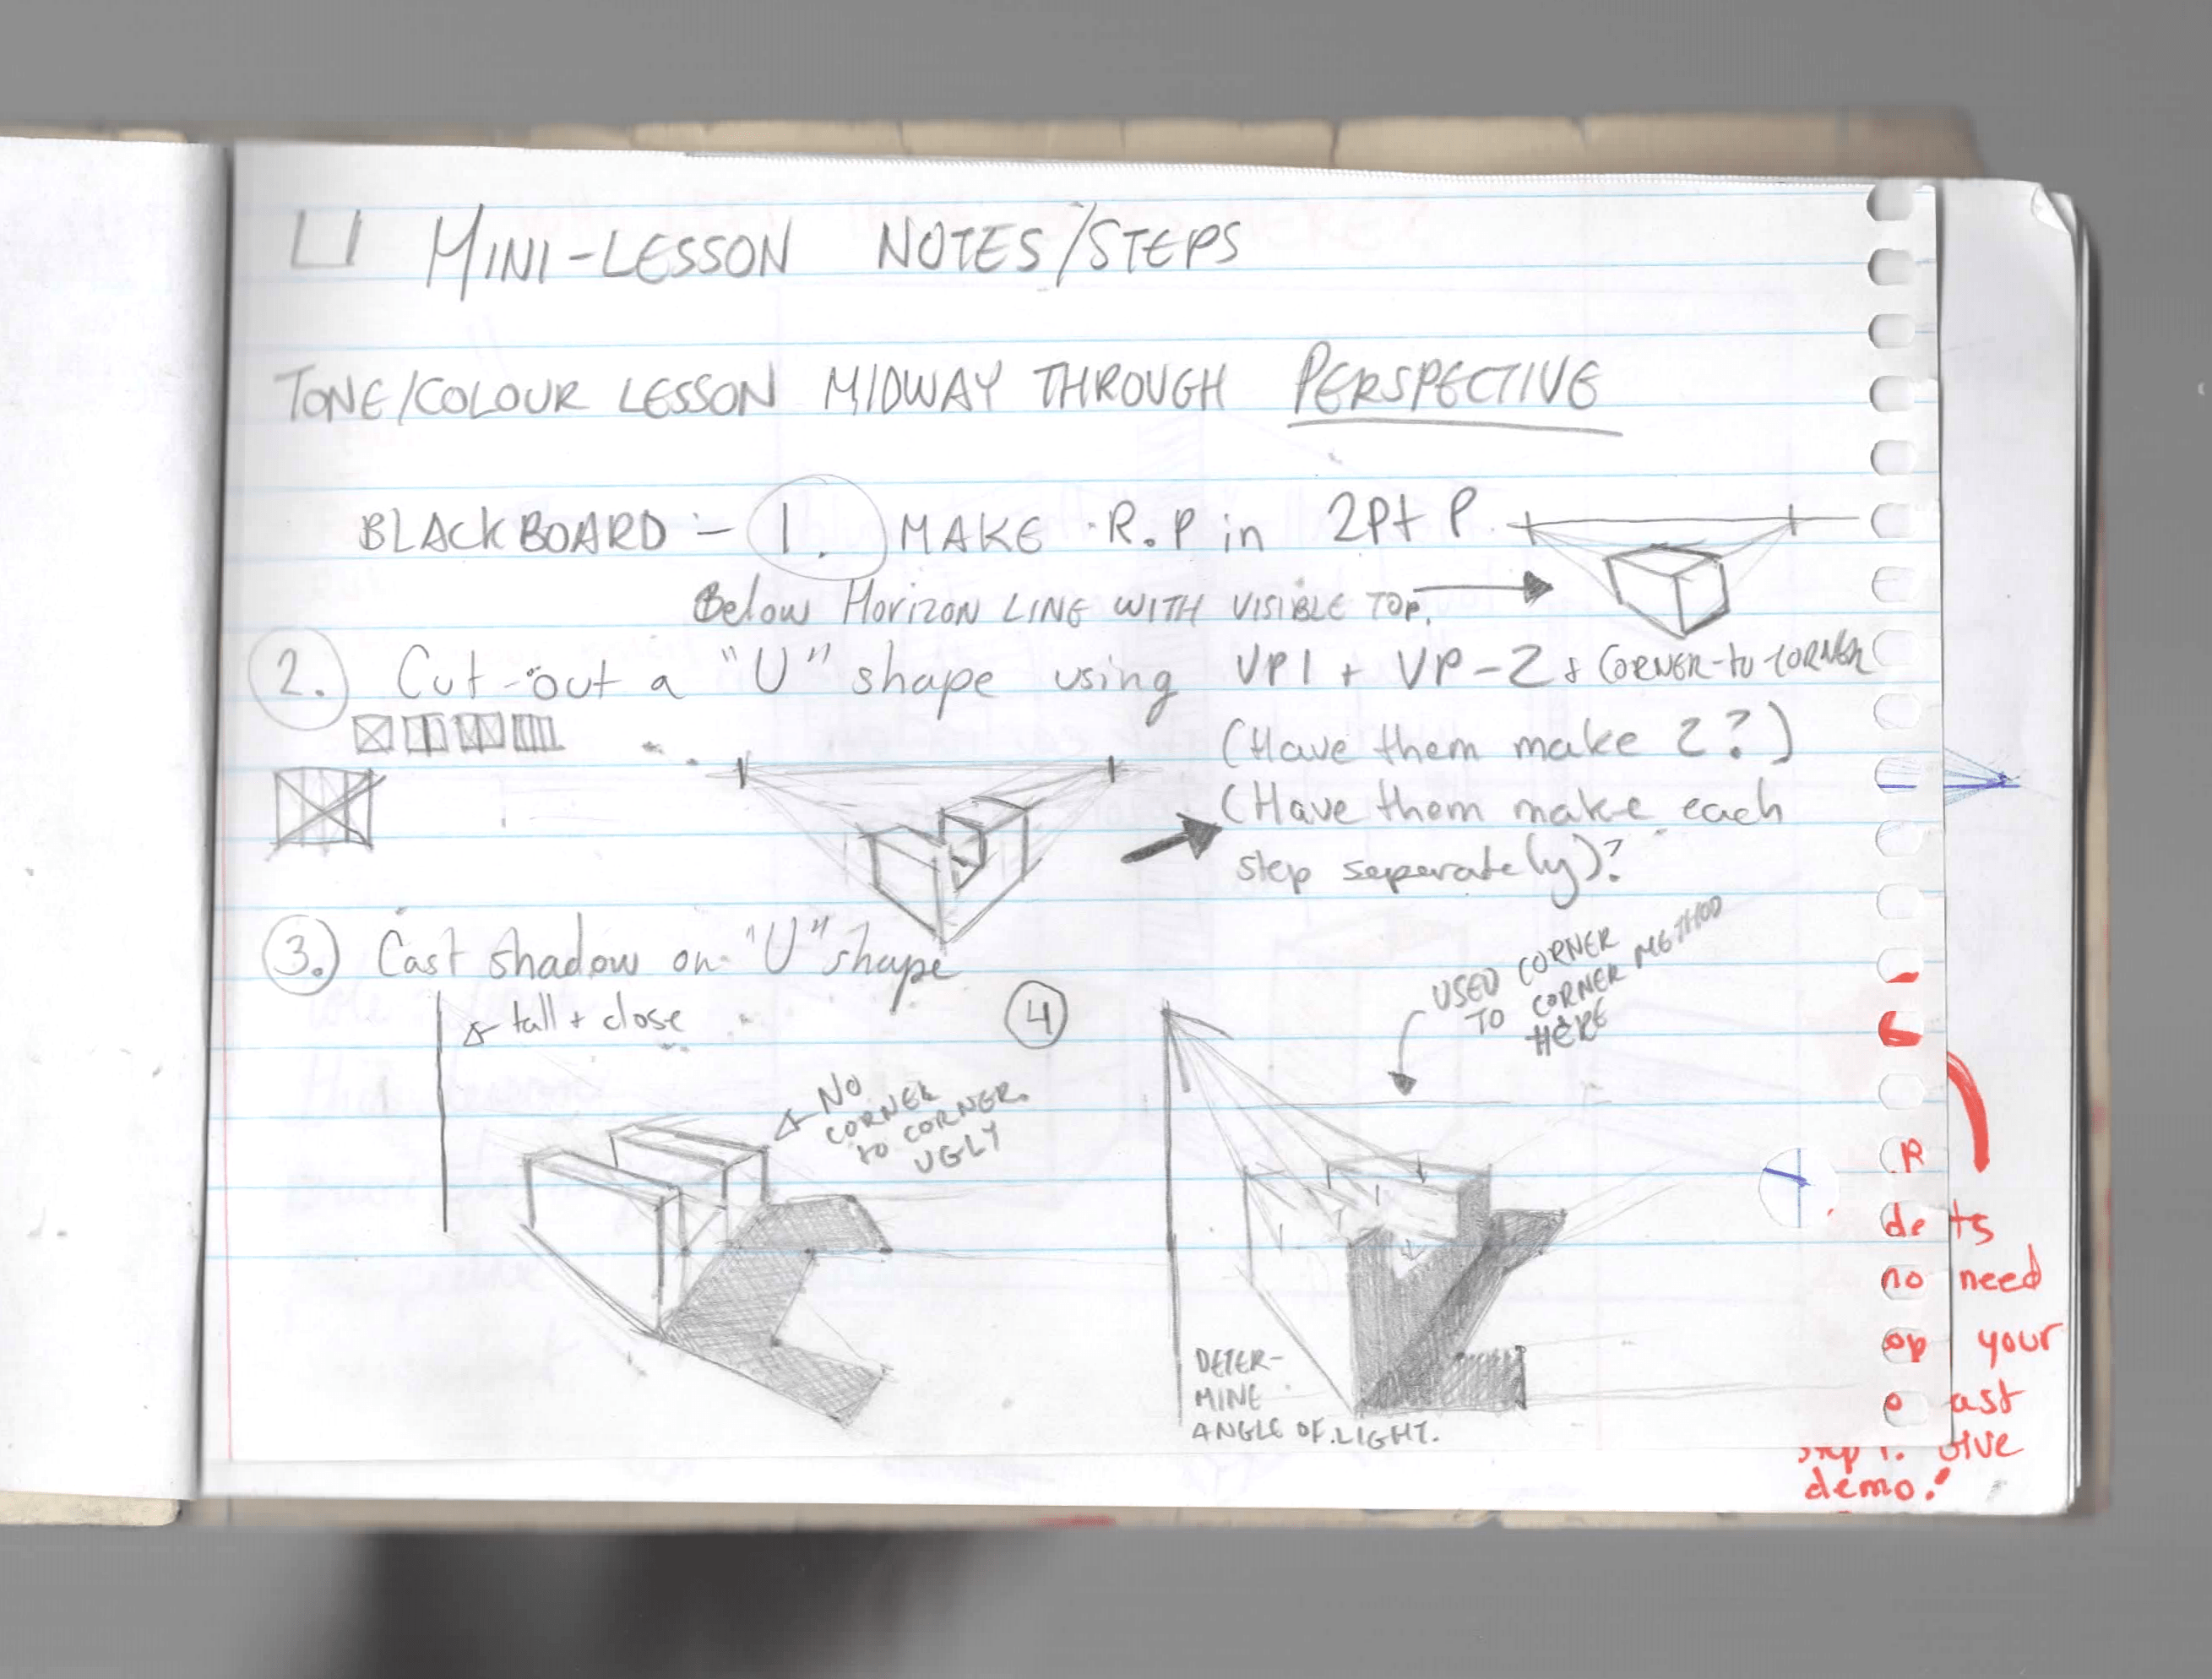 MINI-LESSON NOTES/STEPS
TONE/COLOUR LESSON MIDWAY THROUGH PERSPECTIVE
BLACKBOARD :- 1. MAKE R.P in 2Pt P.
Below Horizon LINE WITH VISIBLE TOP.
2. Cut-out a "U" shape using VP1 + VP-2 + CORNER-to-CORNER
(Have them make 2?)
(Have them make each
step separately)?
3. Cast shadow on "U" shape
tall + close
NO
CORNER
to CORNER.
UGLY
4
USED CORNER
TO CORNER METHOD
HERE
DETER-
MINE
ANGLE OF.LIGHT.
.R
de ts
no need
op your
o ast
step 1. Give
demo!